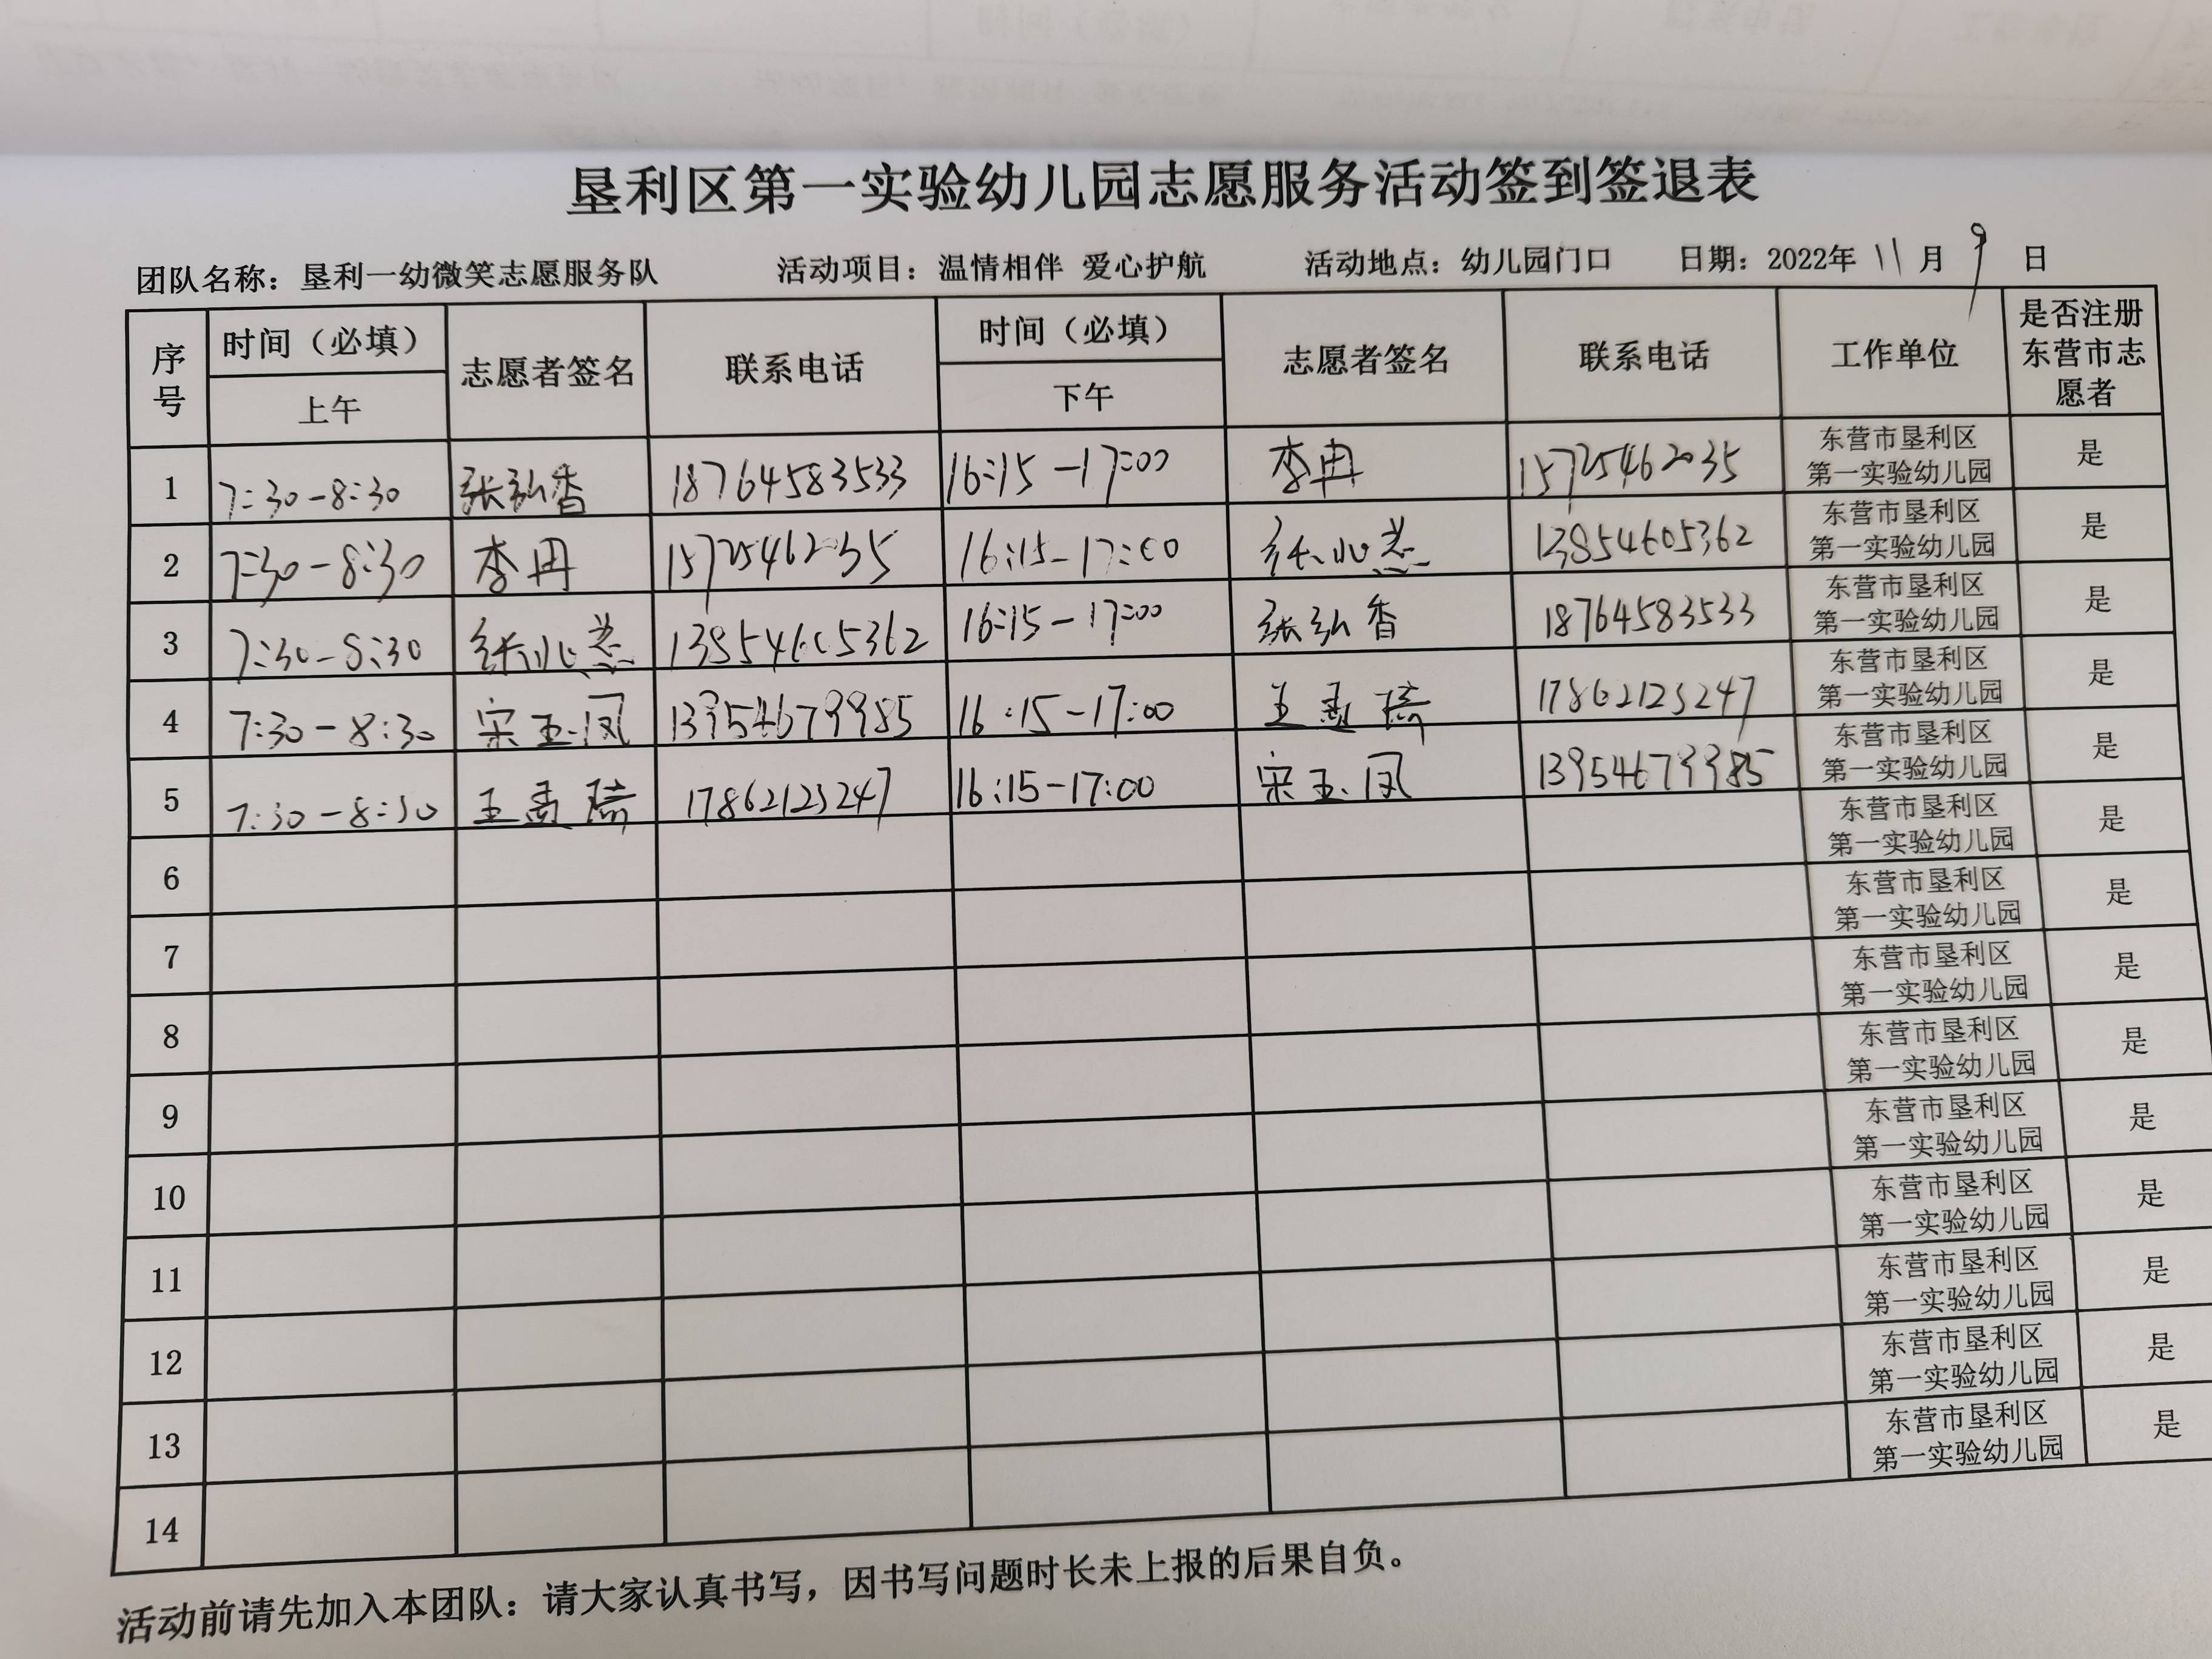 垦利区第一实验幼儿园志愿服务活动签到签退表
团队名称：垦利一幼微笑志愿服务队 活动项目：温情相伴 爱心护航 活动地点：幼儿园门口 日期：2022年 11 月 9 日
序号 时间（必填） 上午 志愿者签名 联系电话 时间（必填） 下午 志愿者签名 联系电话 工作单位 是否注册东营市志愿者
1 7:30-8:30 张弘香 18764583533 16:15-17:00 李冉 15725462035 东营市垦利区第一实验幼儿园 是
2 7:30-8:30 李冉 15725462035 16:15-17:00 张 13854605362 东营市垦利区第一实验幼儿园 是
3 7:30-8:30 张 13854605362 16:15-17:00 张弘香 18764583533 东营市垦利区第一实验幼儿园 是
4 7:30-8:30 宋玉凤 13954679985 16:15-17:00 王 17862123247 东营市垦利区第一实验幼儿园 是
5 7:30-8:30 王 17862123247 16:15-17:00 宋玉凤 13954679985 东营市垦利区第一实验幼儿园 是
6 东营市垦利区第一实验幼儿园 是
7 东营市垦利区第一实验幼儿园 是
8 东营市垦利区第一实验幼儿园 是
9 东营市垦利区第一实验幼儿园 是
10 东营市垦利区第一实验幼儿园 是
11 东营市垦利区第一实验幼儿园 是
12 东营市垦利区第一实验幼儿园 是
13 东营市垦利区第一实验幼儿园 是
14 东营市垦利区第一实验幼儿园 是
活动前请先加入本团队：请大家认真书写，因书写问题时长未上报的后果自负。